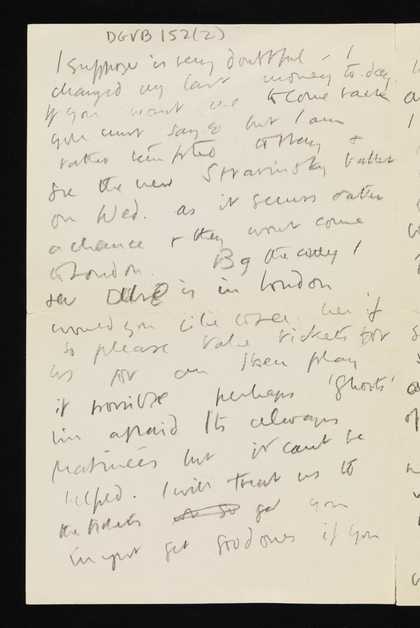 DGVB 152(2)
I suppose is very doubtful - I
changed my last money to-day.
If you want me to come back
you must say so but I am
rather tempted to stay &
see the new Stravinsky ballet
on Wed. as it seems rather
a chance & they wont come
to London. By the way I
see is in London
would you like to see her if
so please take tickets for
us for an Ibsen play
if possible perhaps 'Ghosts'
Im afraid Its always
Matinées but it cant be
helped. I will treat us to
the tickets so get you
must get good ones if you